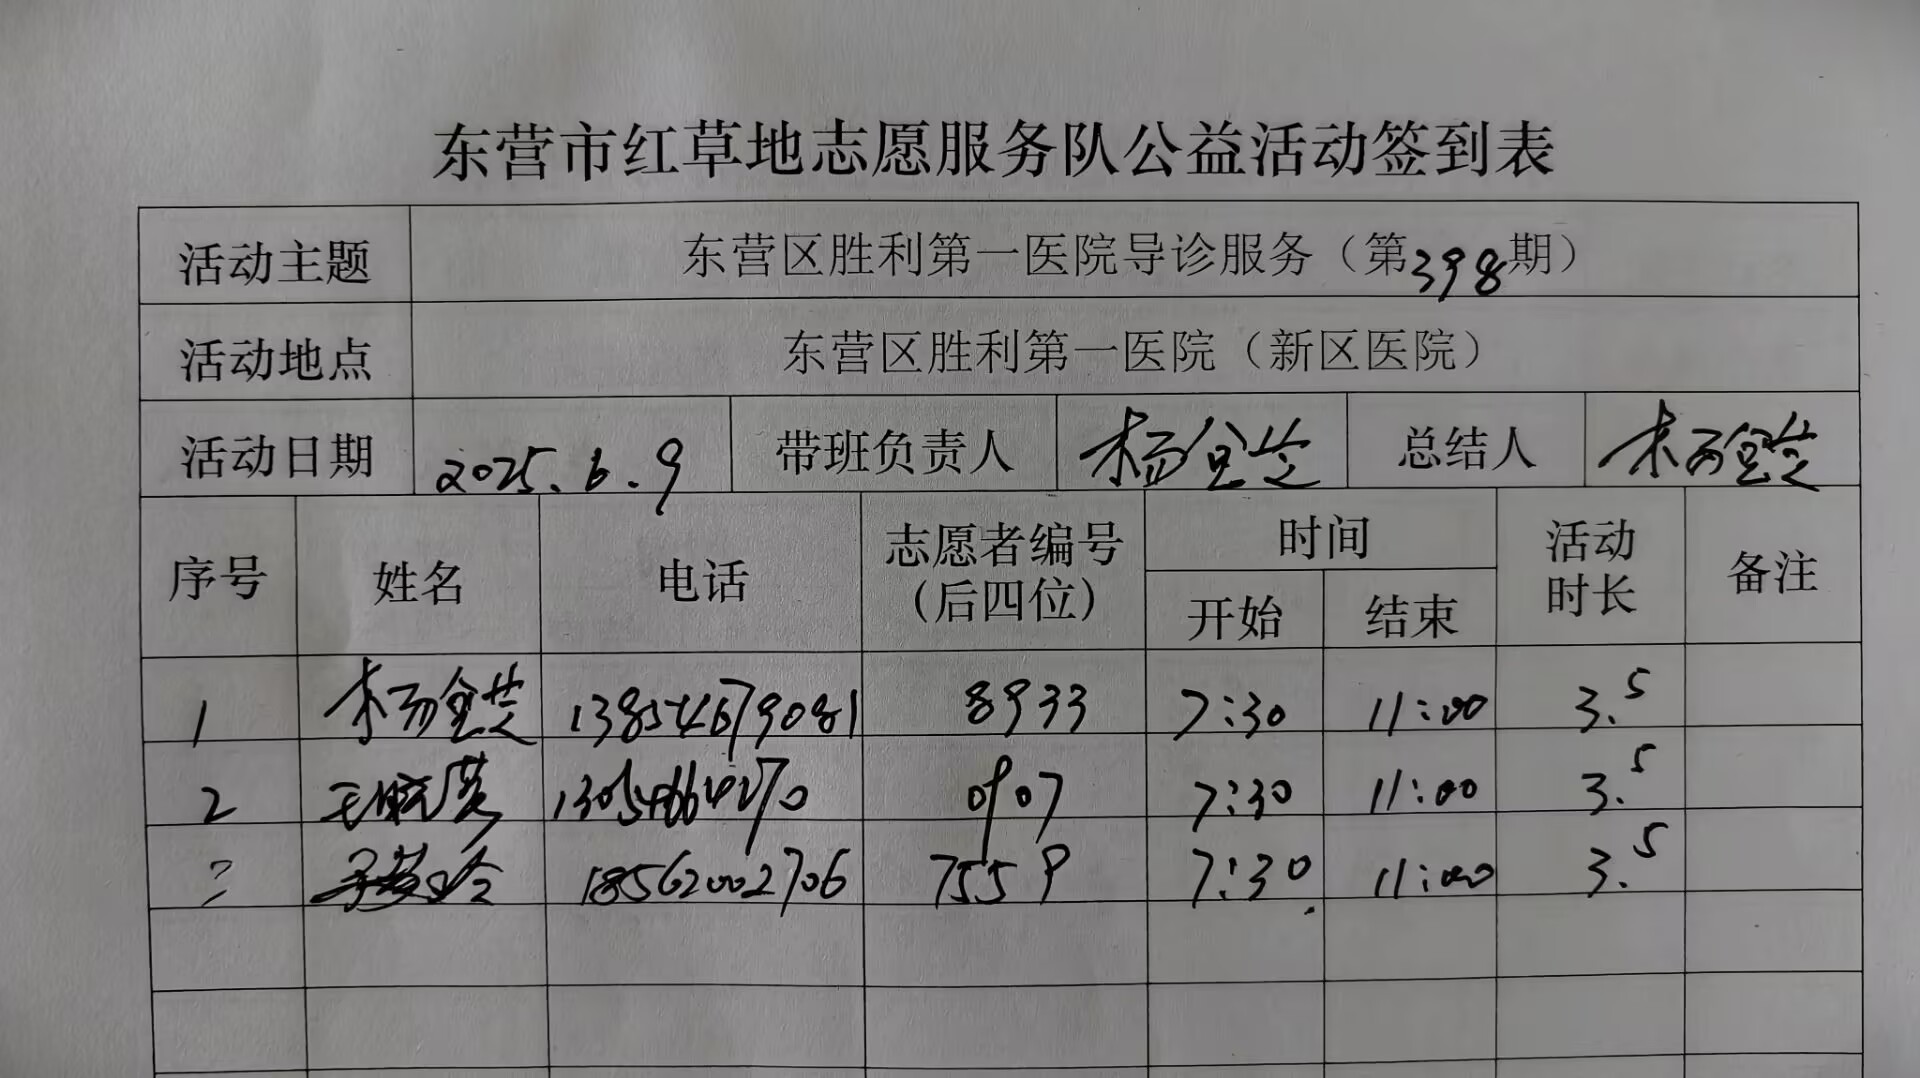 东营市红草地志愿服务队公益活动签到表
活动主题 东营区胜利第一医院导诊服务（第398期）
活动地点 东营区胜利第一医院（新区医院）
活动日期 2025.6.9 带班负责人 杨金芝 总结人 杨金芝
序号 姓名 电话 志愿者编号（后四位） 时间 开始 结束 活动时长 备注
1 杨金芝 13854679081 8933 7:30 11:00 3.5
2 0907 7:30 11:00 3.5
3 18562002706 7559 7:30 11:00 3.5